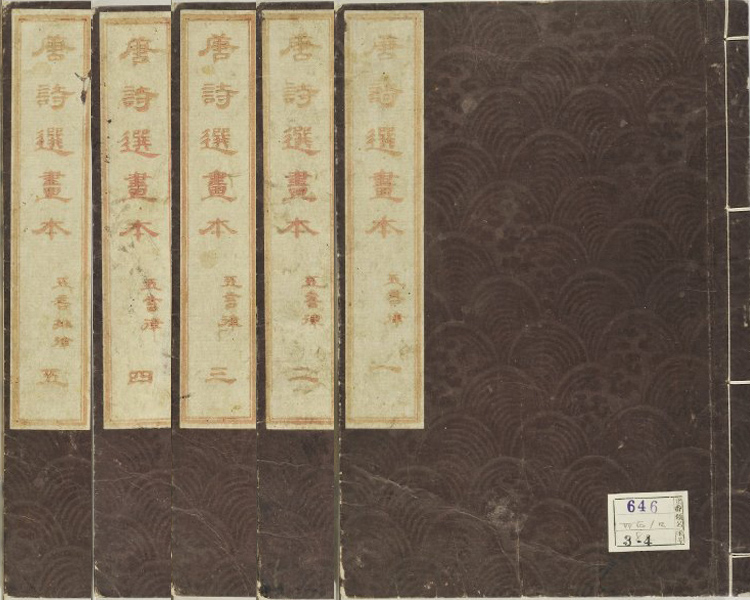 唐詩選畫本
五言律
一
唐詩選畫本
五言律
二
唐詩選畫本
五言律
三
唐詩選畫本
五言律
四
唐詩選畫本
五言排律
五
646
3-4